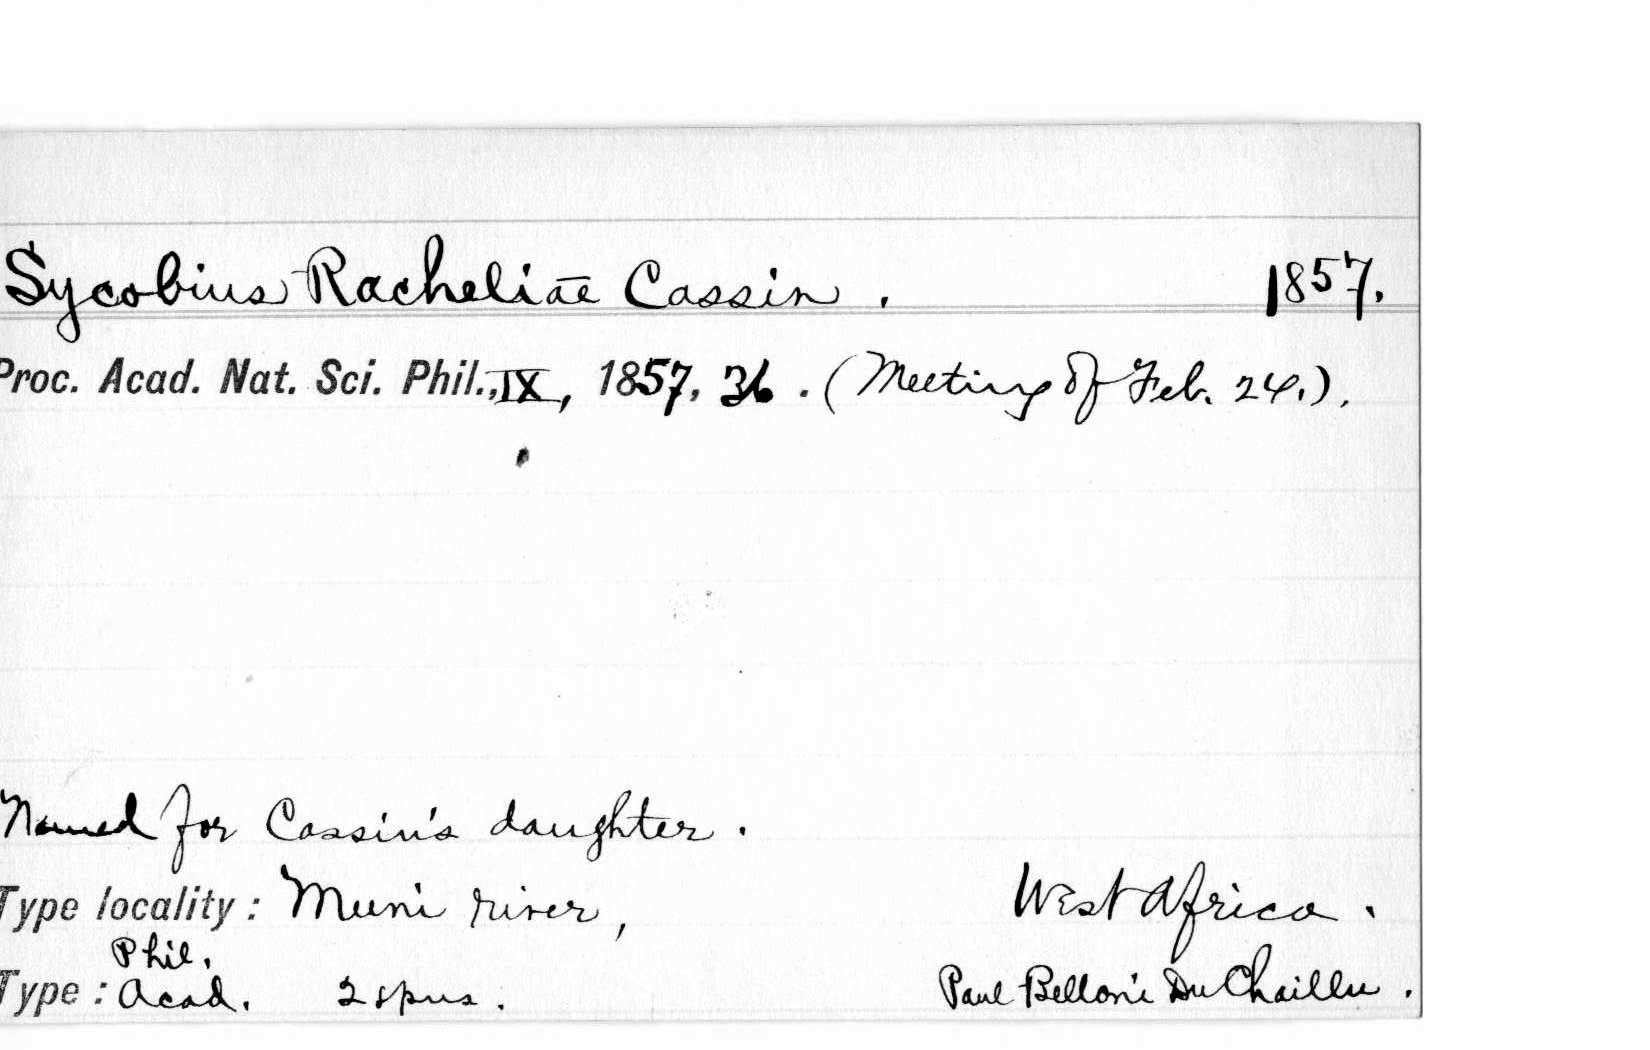 Sycobius Racheliae Cassin . 1857.
Proc. Acad. Nat. Sci. Phil., IX, 1857, 36 . (Meeting of Feb. 24.).
Named for Cassin's daughter .
Type locality : Muni river, West Africa .
Phil.
Type : Acad. 2 spns . Paul Belloni Du Chaillu .